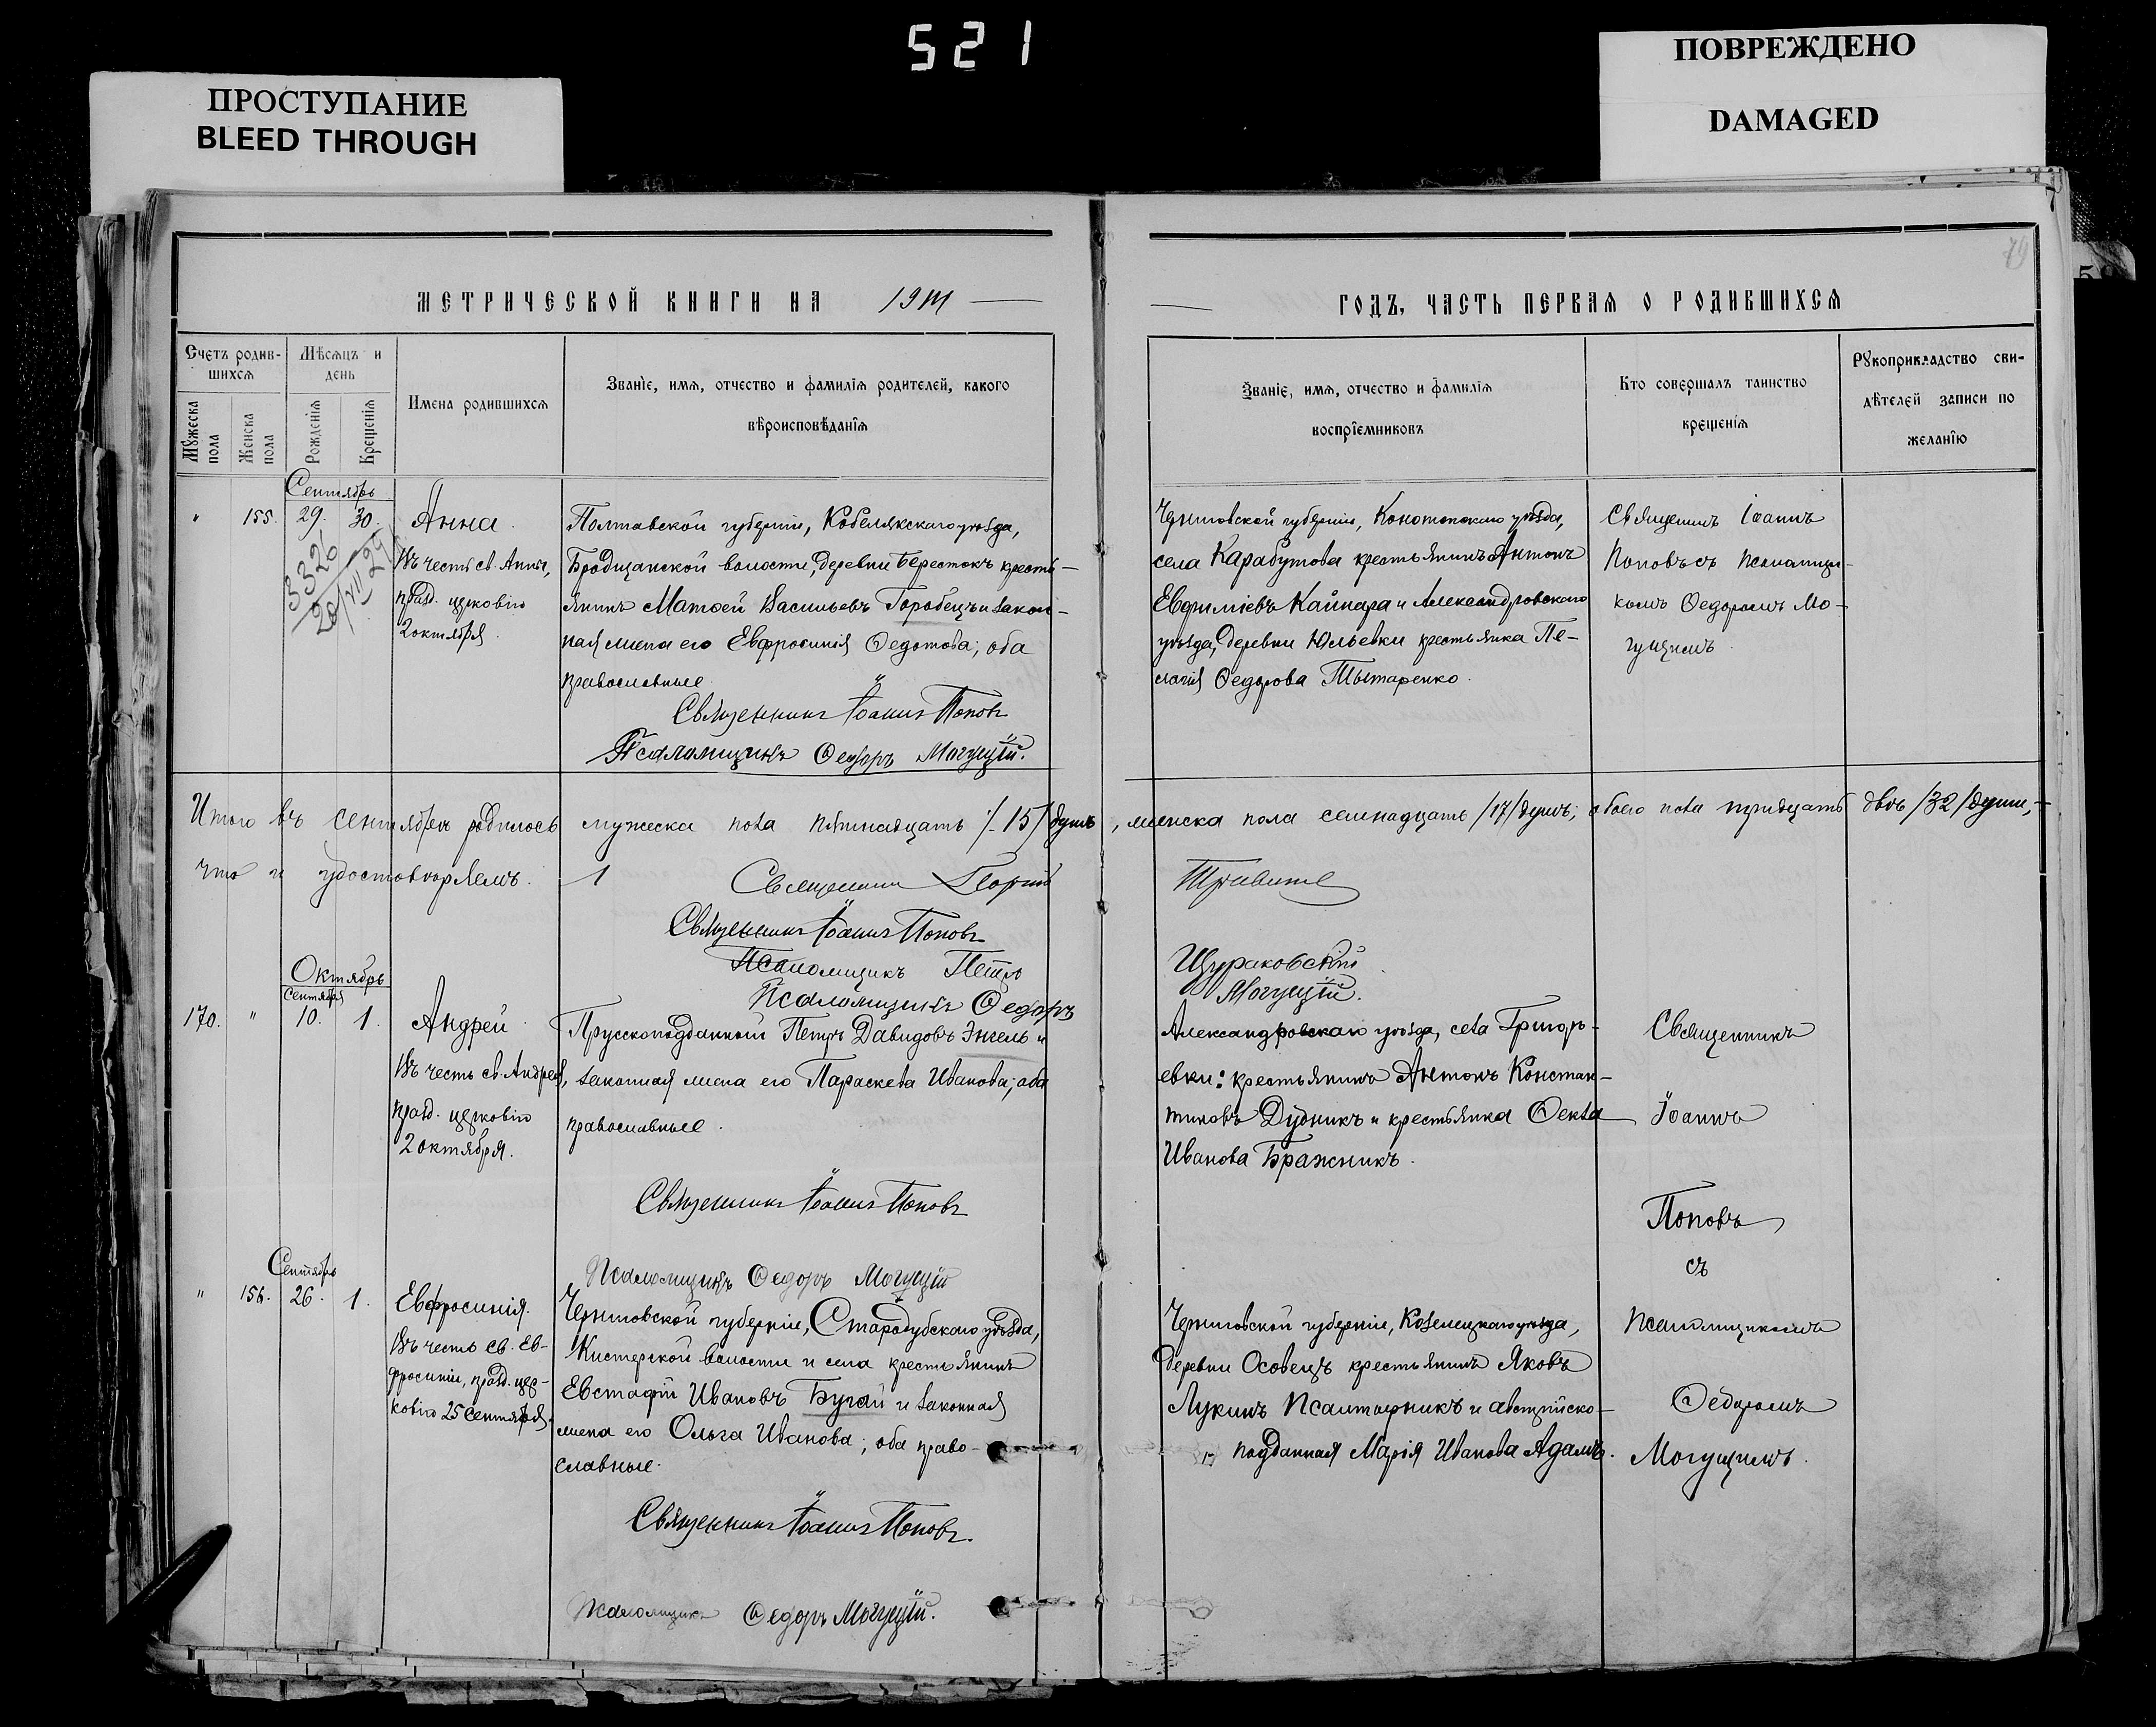 521
ПРОСТУПАНИЕ
BLEED THROUGH
ПОВРЕЖДЕНО
DAMAGED
79
МЕТРИЧЕСКОЙ КНИГИ НА 1911
ГОДЪ, ЧАСТЬ ПЕРВАЯ О РОДИВШИХСЯ
Счетъ родив-
шихся
Мужеска пола
Женска пола
Мѣсяцъ и
день
Рожденія
Крещенія
Имена родившихся
Званіе, имя, отчество и фамилія родителей, какого
вѣроисповѣданія
Званіе, имя, отчество и фамилія
воспріемниковъ
Кто совершалъ таинство
крещенія
Рукоприкладство сви-
дѣтелей записи по
желанію
Сентябрь
" 155. 29. 30.
3326
20/VII 29
Анна.
Въ честь св. Анны,
празд. церковію
2 октября.
Полтавской губерніи, Кобелякскаго уѣзда,
Бродщанской волости, деревни Берестокъ кресть-
янинъ Матѳей Васильевъ Горобецъ и закон-
ная жена его Евфросинія Ѳедотова; оба
православные.
Священникъ Іоаннъ Поповъ
Псаломщикъ Ѳедоръ Могущій.
Черниговской губерніи, Конотопскаго уѣзда,
села Карабутова крестьянинъ Антонъ
Евфиміевъ Кайнара и Александровскаго
уѣзда, деревни Юльевки крестьянка Пе-
лагія Ѳедорова Тытаренко.
Священникъ Іоаннъ
Поповъ съ псаломщи-
комъ Ѳедоромъ Мо-
гущимъ.
Итого въ сентябрѣ родилось мужеска пола пятнадцать /15/ душъ, женска пола семнадцать /17/ душъ; обоего пола тридцать двѣ /32/ души,-
что и удостовѣряемъ.
Священникъ Георгій
Священникъ Іоаннъ Поповъ
Псаломщикъ Петръ Щураковскій
Псаломщикъ Ѳедоръ Могущій.
Октябрь
Сентября
170. " 10. 1.
Андрей
Въ честь св. Андрея,
празд. церковію
2 октября.
Прусскоподданный Петръ Давидовъ Энгель и
законная жена его Параскева Иванова; оба
православные.
Священникъ Іоаннъ Поповъ
Псаломщикъ Ѳедоръ Могущій
Александровскаго уѣзда, села Григорь-
евки: крестьянинъ Антонъ Констан-
тиновъ Дудникъ и крестьянка Ѳекла
Иванова Бражникъ.
Священникъ
Іоаннъ
Поповъ
съ
Псаломщикомъ
Ѳедоромъ
Могущимъ.
Сентябрь
" 156. 26. 1.
Евфросинія.
Въ честь св. Ев-
фросиніи, празд. цер-
ковію 25 сентября.
Черниговской губерніи, Стародубскаго уѣзда,
Кистерской волости и села крестьянинъ
Евстафій Ивановъ Бугай и законная
жена его Ольга Иванова; оба право-
славные.
Священникъ Іоаннъ Поповъ.
Псаломщикъ Ѳедоръ Могущій.
Черниговской губерніи, Козелецкаго уѣзда,
деревни Осовецъ крестьянинъ Яковъ
Лукинъ Псалтарникъ и австрійско-
подданная Марія Иванова Адамъ.